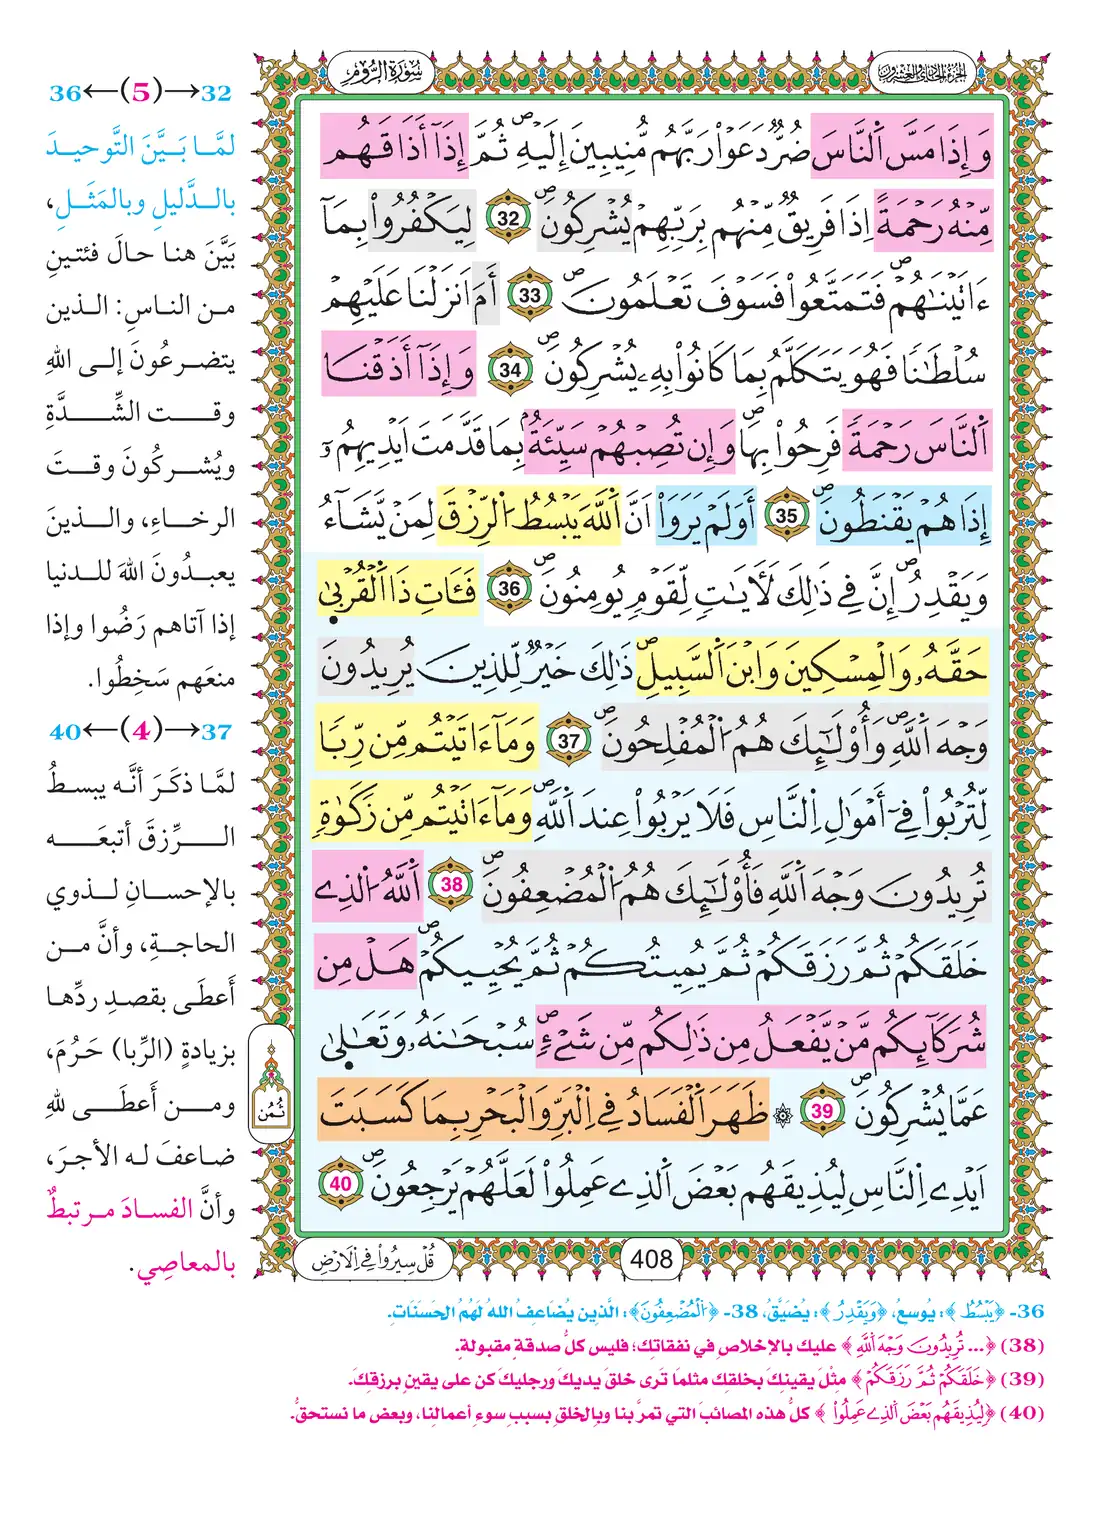 الجزء الحادي والعشرون
سُورَةُ الرُّومِ
وَإِذَا مَسَّ اَ۬لنَّاسَ ضُرّٞ دَعَوْاْ رَبَّهُم مُّنِيبِينَ إِلَيْهِۖ ثُمَّ إِذَآ أَذَاقَهُم
مِّنْهُ رَحْمَةً اِذَا فَرِيقٞ مِّنْهُم بِرَبِّهِمْ يُشْرِكُونَۖ 32 لِيَكْفُرُواْ بِمَآ
ءَاتَيْنَٰهُمْۖ فَتَمَتَّعُواْ فَسَوْفَ تَعْلَمُونَۖ 33 أَمَ اَنزَلْنَا عَلَيْهِمْ
سُلْطَٰنٗا فَهُوَ يَتَكَلَّمُ بِمَا كَانُواْ بِهِۦ يُشْرِكُونَۖ 34 وَإِذَآ أَذَقْنَا
اَ۬لنَّاسَ رَحْمَةٗ فَرِحُواْ بِهَاۖ وَإِن تُصِبْهُمْ سَيِّئَةُۢ بِمَا قَدَّمَتَ اَيْدِيهِمُۥٓ
إِذَا هُمْ يَقْنَطُونَۖ 35 أَوَلَمْ يَرَوَاْ اَنَّ اَ۬للَّهَ يَبْسُطُ اُ۬لرِّزْقَ لِمَنْ يَّشَآءُ
وَيَقْدِرُۖ إِنَّ فِے ذَٰلِكَ لَأٓيَٰتٖ لِّقَوْمٖ يُومِنُونَۖ 36 فَـَٔاتِ ذَا اَ۬لْقُرْب۪ىٰ
حَقَّهُۥ وَالْمِسْكِينَ وَابْنَ اَ۬لسَّبِيلِۖ ذَٰلِكَ خَيْرٞ لِّلذِينَ يُرِيدُونَ
وَجْهَ اَ۬للَّهِۖ وَأُوْلَٰٓئِكَ هُمُ اُ۬لْمُفْلِحُونَۖ 37 وَمَآ ءَاتَيْتُم مِّن رِّباٗ
لِّتُرْبُواْ فِےٓ أَمْوَٰلِ اِ۬لنَّاسِ فَلَا يَرْبُواْ عِندَ اَ۬للَّهِۖ وَمَآ ءَاتَيْتُم مِّن زَكَوٰةٖ
تُرِيدُونَ وَجْهَ اَ۬للَّهِ فَأُوْلَٰٓئِكَ هُمُ اُ۬لْمُضْعِفُونَۖ 38 اَ۬للَّهُ اُ۬لذِے
خَلَقَكُمْ ثُمَّ رَزَقَكُمْ ثُمَّ يُمِيتُكُمْ ثُمَّ يُحْيِيكُمْۖ هَلْ مِن
شُرَكَآئِكُم مَّنْ يَّفْعَلُ مِن ذَٰلِكُم مِّن شَےْءٖۖ سُبْحَٰنَهُۥ وَتَعَٰل۪ىٰ
عَمَّا يُشْرِكُونَۖ 39 ۞ ظَهَرَ اَ۬لْفَسَادُ فِے اِ۬لْبَرِّ وَالْبَحْرِ بِمَا كَسَبَتَ
اَيْدِے اِ۬لنَّاسِ لِيُذِيقَهُم بَعْضَ اَ۬لذِے عَمِلُواْ لَعَلَّهُمْ يَرْجِعُونَۖ 40
ثُمُن
408
قُلْ سِيرُواْ فِے اِ۬لَارْضِ
32→(5)←36
لمَّا بَيَّنَ التَّوحيدَ
بالدَّليلِ وبالمَثَلِ،
بَيَّنَ هنا حالَ فئتينِ
من الناسِ: الذين
يتضرعُونَ إلى اللهِ
وقت الشِّدَّةِ
ويُشركُونَ وقتَ
الرخاءِ، والذينَ
يعبدُونَ اللهَ للدنيا
إذا آتاهم رَضُوا وإذا
منعَهم سَخِطُوا.
37→(4)←40
لمَّا ذكَرَ أنَّه يبسطُ
الرِّزقَ أتبعَه
بالإحسانِ لذوي
الحاجةِ، وأنَّ من
أعطَى بقصدِ ردِّها
بزيادةٍ (الرِّبا) حَرُمَ،
ومن أَعطَى للهِ
ضاعفَ له الأجرَ،
وأنَّ الفسادَ مرتبطٌ
بالمعاصِي.
36- ﴿يَبْسُطُ﴾: يُوسعُ، ﴿وَيَقْدِرُ﴾: يُضَيِّقُ، 38- ﴿اُ۬لْمُضْعِفُونَ﴾: الَّذِينَ يُضَاعِفُ اللهُ لَهُمُ الحَسَنَاتِ.
(38) ﴿... تُرِيدُونَ وَجْهَ اَ۬للَّهِ﴾ عليك بالإخلاصِ في نفقاتِك؛ فليس كلُّ صدقةٍ مقبولة.
(39) ﴿خَلَقَكُمْ ثُمَّ رَزَقَكُمْ﴾ مِثْلَ يقينِكَ بخلقِك مثلما تَرى خلقَ يديكَ ورجليكَ كن على يقينٍ برزقِكَ.
(40) ﴿لِيُذِيقَهُم بَعْضَ اَ۬لذِے عَمِلُواْ﴾ كلُّ هذه المصائبِ التي تمرُّ بنا وبالخلقِ بسببِ سوءِ أعمالِنا، وبعض ما نستحقُّ.